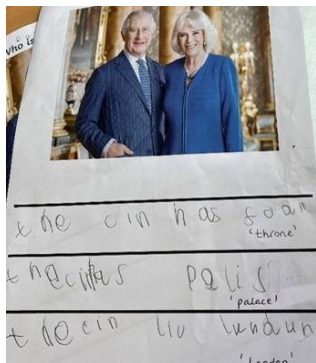 who is
the cin has foan
'throne'
the cin has palis
'palace'
the cin liv lundun
'London'